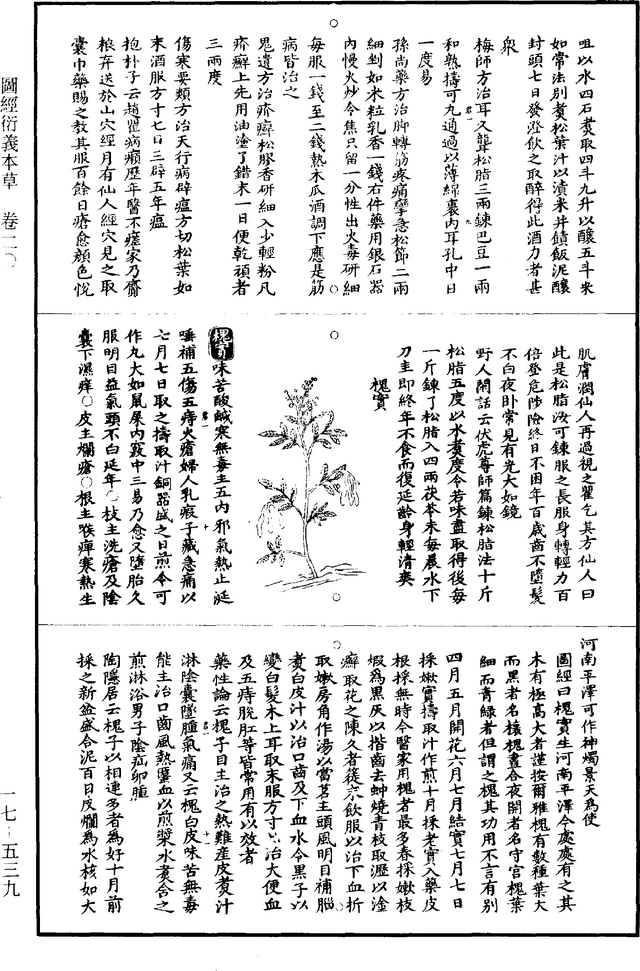 圖經衍義本草　卷二〇
咀以水四石煑取四斗九升以釀五斗米
如常法別煑松葉汁以漬米并饙飯泥釀
封頭七日發澄飲之取醉得此酒力者甚
衆
梅師方治耳久聾松脂三兩鍊巴豆一兩
和熟擣可九通過以薄綿裹內耳孔中日
一度易
孫尚藥方治脚轉筋疼痛攣急松節二兩
細剉如米粒乳香一錢右件藥用銀石器
內慢火炒令焦只留一分性出火毒研細
每服一錢至二錢熱木瓜酒調下應是筋
病皆治之
鬼遺方治疥癬松膠香研細入少輕粉凡
疥癬上先用油塗了錯末一日便乾頑者
三兩度
傷寒要類方治天行病辟瘟方切松葉如
末酒服方寸七日三辟五年瘟
抱朴子云趙瞿病癩歷年醫不瘥家乃齎
粮弃送於山穴經月有仙人經穴見之取
囊巾藥賜之教其服百餘日瘡愈顏色悅
肌膚潤仙人再過視之瞿乞其方仙人曰
此是松脂汝可鍊服之長服身轉輕力百
倍登危陟險終日不困年百歲齒不墮髮
不白夜卧常見有光大如鏡
野人閑話云伏虎尊師篇鍊松脂法十斤
松脂五度以水煑度令苦味盡取得後每
一斤鍊了松脂入四兩茯苓末每晨水下
刀圭即終年不食而復延齡身輕清爽
槐實
槐實味苦酸鹹寒無毒主五內邪氣熱止涎
唾補五傷五痔火瘡婦人乳瘕子藏急痛以
七月七日取之擣取汁銅器盛之日煎令可
作丸大如鼠屎內竅中三易乃愈又墮胎久
服明目益氣頭不白延年○枝主洗瘡及陰
囊下濕痒○皮主爛瘡○根主喉痺寒熱生
河南平澤可作神燭景天為使
圖經曰槐實生河南平澤今處處有之其
木有極高大者謹按爾雅槐有數種葉大
而黑者名櫰槐晝合夜開者名守宮槐葉
細而青綠者但謂之槐其功用不言有別
四月五月開花六月七月結實七月七日
採嫩實擣取汁作煎十月採老實入藥皮
根採無時今醫家用槐者最多春採嫩枝
煆為黑灰以揩齒去蚛燒青枝取瀝以塗
癬取花之陳久者篩末飲服以治下血折
取嫩房角作湯以當茗主頭風明目補腦
煑白皮汁以治口齒及下血水令黑子以
變白髮木上耳取末服方寸匕治大便血
及五痔脫肛等皆常用有以效者
藥性論云槐子自主治之熱難產皮煑汁
淋陰囊墜腫氣痛又云槐白皮味苦無毒
能主治口齒風熱䘌血以煎漿水煑含之
煎淋浴男子陰疝卵腫
陶隱居云槐子以相連多者為好十月前
採之新盆盛合泥百日皮爛為水核如大
一七-五三九